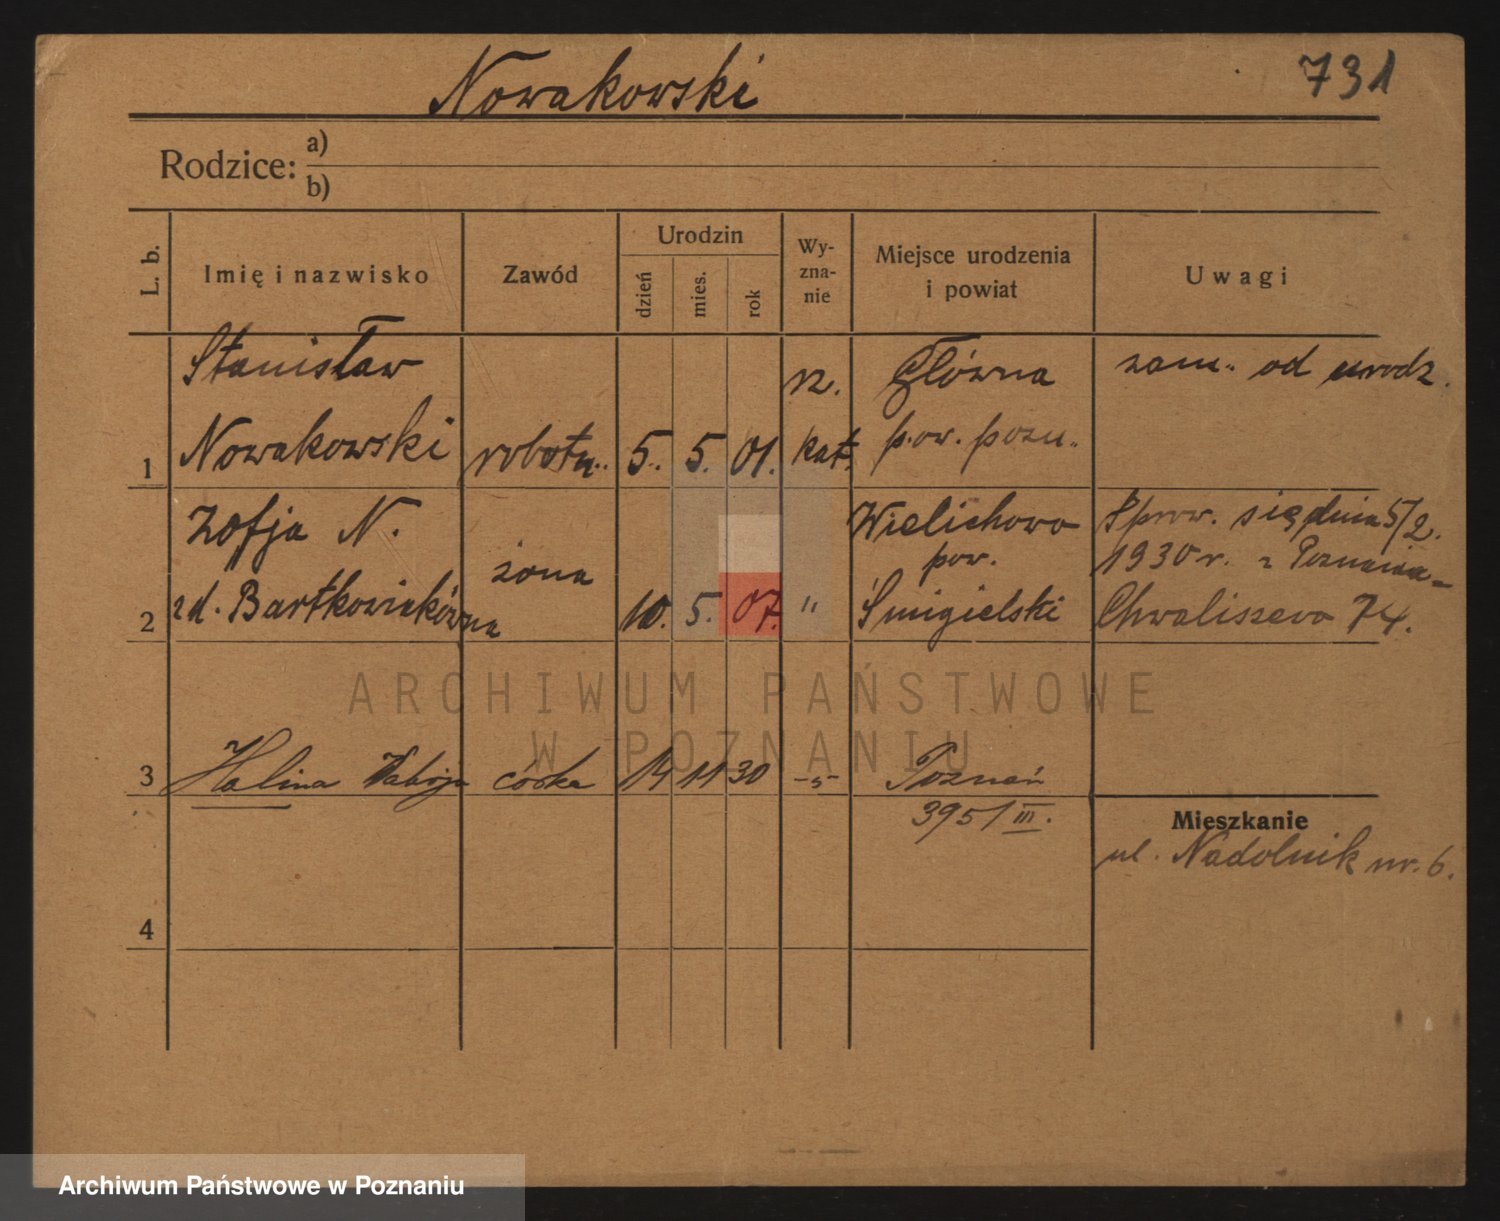 Nowakowski
731
Rodzice: a)
b)
L. b.
Imię i nazwisko
Zawód
Urodzin
dzień
mies.
rok
Wy-
zna-
nie
Miejsce urodzenia
i powiat
Uwagi
1
Stanisław
Nowakowski
robotn.
5. 5. 01.
rz.
kat.
Główna
pow. pozn.
zam. od urodz.
2
Zofja N.
zd. Bartkowiakówna
żona
10. 5. 07.
"
Wielichowo
pow.
Śmigielski
Sprow. się dnia 5/2.
1930 r. z Poznania-
Chwaliszewo 74.
3
Halina
córka
14 11 30
-"-
Poznań
3951/III.
Mieszkanie
ul. Nadolnik nr. 6.
4
ARCHIWUM PAŃSTWOWE
W POZNANIU
Archiwum Państwowe w Poznaniu